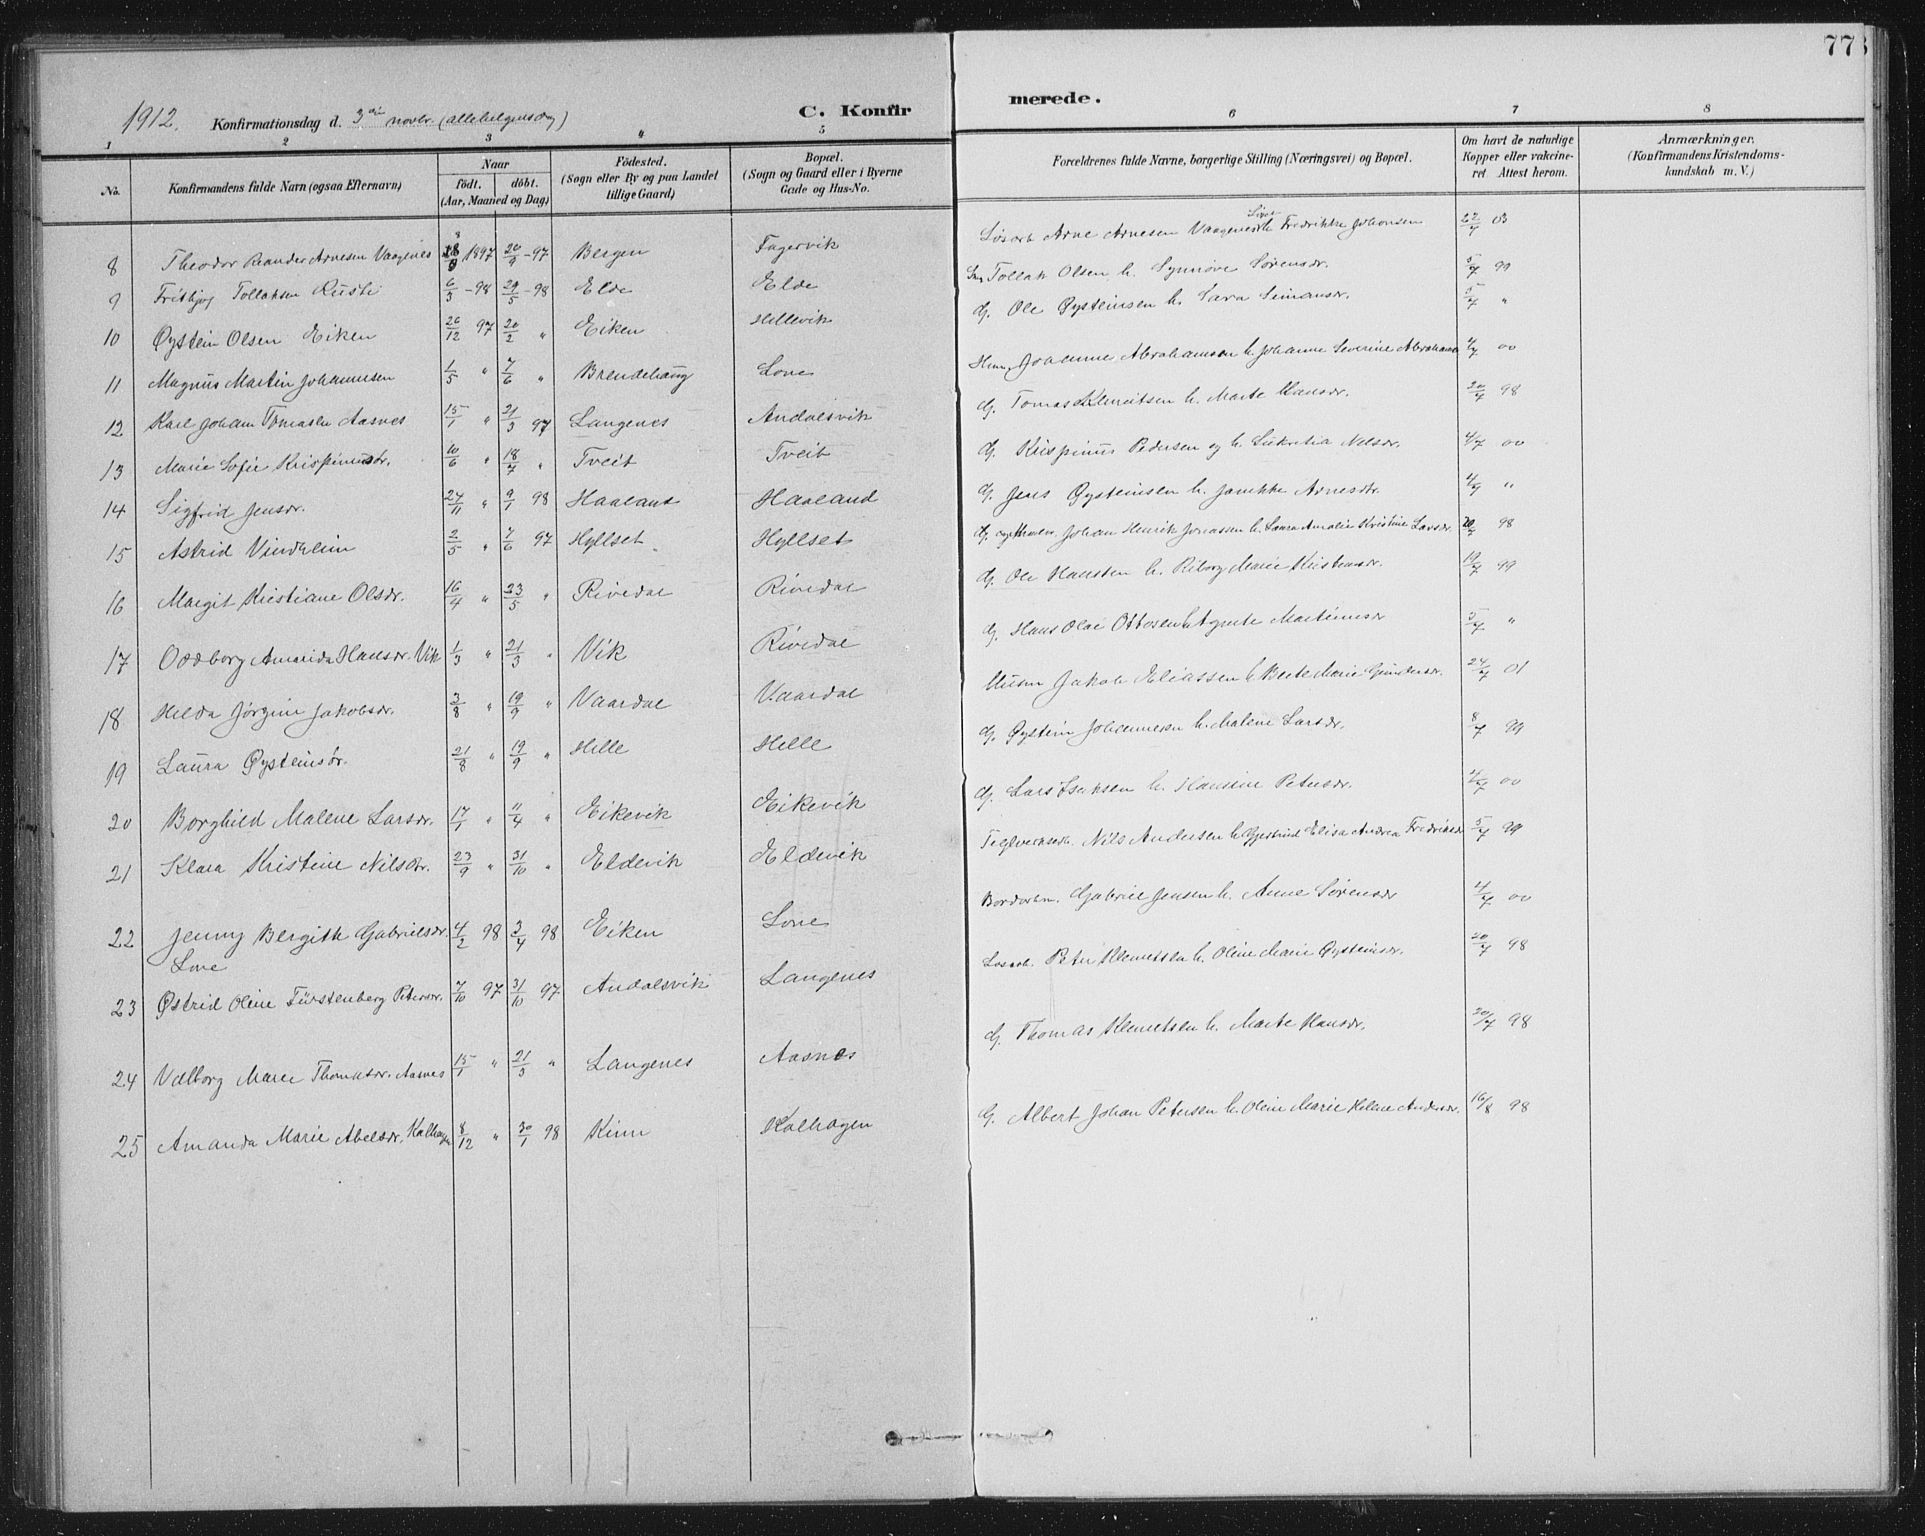 77
1912. Konfirmationsdag d. 3die novbr. (allehelgensdag) C. Konfirmerede.
1 2 3 4 5 6 7 8
No. Konfirmandens fulde Navn (ogsaa Efternavn) Naar födt. döbt. (Aar, Maaned og Dag) Födested. (Sogn eller By og paa Landet tillige Gaard) Bopæl. (Sogn og Gaard eller i Byerne Gade og Hus-No. Forældrenes fulde Navne, borgerlige Stilling (Næringsvei) og Bopæl. Om havt de naturlige Kopper eller vakcineret Attest herom. Anmærkninger. (Konfirmandens Kristendomskundskab m. V.)
8 Theodor Reander Arnesen Vaagenes 1897 20/9 - 97 Bergen Fagervik Løsarb Arne Arnesen Vaagenes Fredrikke Johansen 22/7 03
9 Fritbjog Tollaksen Rusti 6/3 - 98 29/5 - 98 Elde Elde Tollak Olsen h. Synnøve Sørensdr. 5/7 99
10 Øystein Olsen Eiken 26/12 97 20/2 " Eiken Hellevik G. Ole Øysteinsen h. Sara Simonsdr. 5/7 "
11 Magnus Martin Johannesen 1/5 " 7/6 " Brendehaug Lone Johannes Abrahamsen h. Johanne Severine 4/7 00
12 Karl Johan Tomasen Aasnes 15/1 " 21/3 97 Langenes Andalsvik G. Tomas Klemetsen h. Marte Hansdr. 20/7 98
13 Marie Sofie Krispinusdr. 10/6 " 18/7 " Tveit Tveit G. Krispinus Pedersen og h. Lukretia Nilsdr. 4/7 00
14 Sigfrid Jensdr. 24/11 " 9/1 98 Haaland Haaland G. Jens Øysteinsen h. Jamkke Arnesdtr. 4/7 "
15 Astrid Vindheim 2/5 " 7/6 97 Hyllset Hyllset G. Johan Henrik Jonassen h. Laura Amalie Kristine Larsdr. 20/7 98
16 Margit Kristiane Olsdr. 16/4 " 23/5 " Rivedal Rivedal G. Ole Hansten h. Riborg Marie Kristensdr. 19/7 99
17 Oddborg Amanda Hansdr. Vik 1/3 " 21/3 " Vik Rivedal G. Hans Olai Ottosen h. Agnete Martinusdr 5/7 "
18 Hilda Jørgine Jakobsdr. 3/8 " 19/9 " Vaardal Vaardal Husm Jakob Eliassen h. Berte Marie Gundersdr. 24/7 01
19 Laura Øysteinsdr. 21/8 " 19/9 " Hille Helle G. Øystein Johannesen h. Malene Larsdr. 8/7 99
20 Borghild Malene Larsdr. 17/1 " 11/4 " Eikevik Eikevik G. Lars Isaksen h. Hansine Petersdr. 4/7 00
21 Klara Kristine Nilsdr. 23/9 " 31/10 " Eldevik Eldevik Teglverksarb. Nils Andersen h. Gjertrud Elisa Andrea 5/7 99
22 Jenny Bergith Gabrielsdr. Lone 4/2 98 3/4 98 Eiken Lone Gabriel Jensen h. Anne Sørensdr 4/7 00
23 Østrid Oline Fürstenberg Petersdr. 7/10 97 31/10 97 Andalsvik Langenes Løsarb. Peter Klemetsen h. Oline Marie Øysteinsdr. 20/7 98
24 Valborg Marie Thomasdr. Aasnes 15/1 " 21/3 " Langenes Aasnes G. Thomas Klemetsen h. Marte Hansdr. 20/7 98
25 Amanda Marie Abelsdr. Kalhagen 8/12 " 30/1 98 Kinn Kalhagen G. Albert Johan Petersen h. Oline Marie Helene Andersdr. 16/8 98